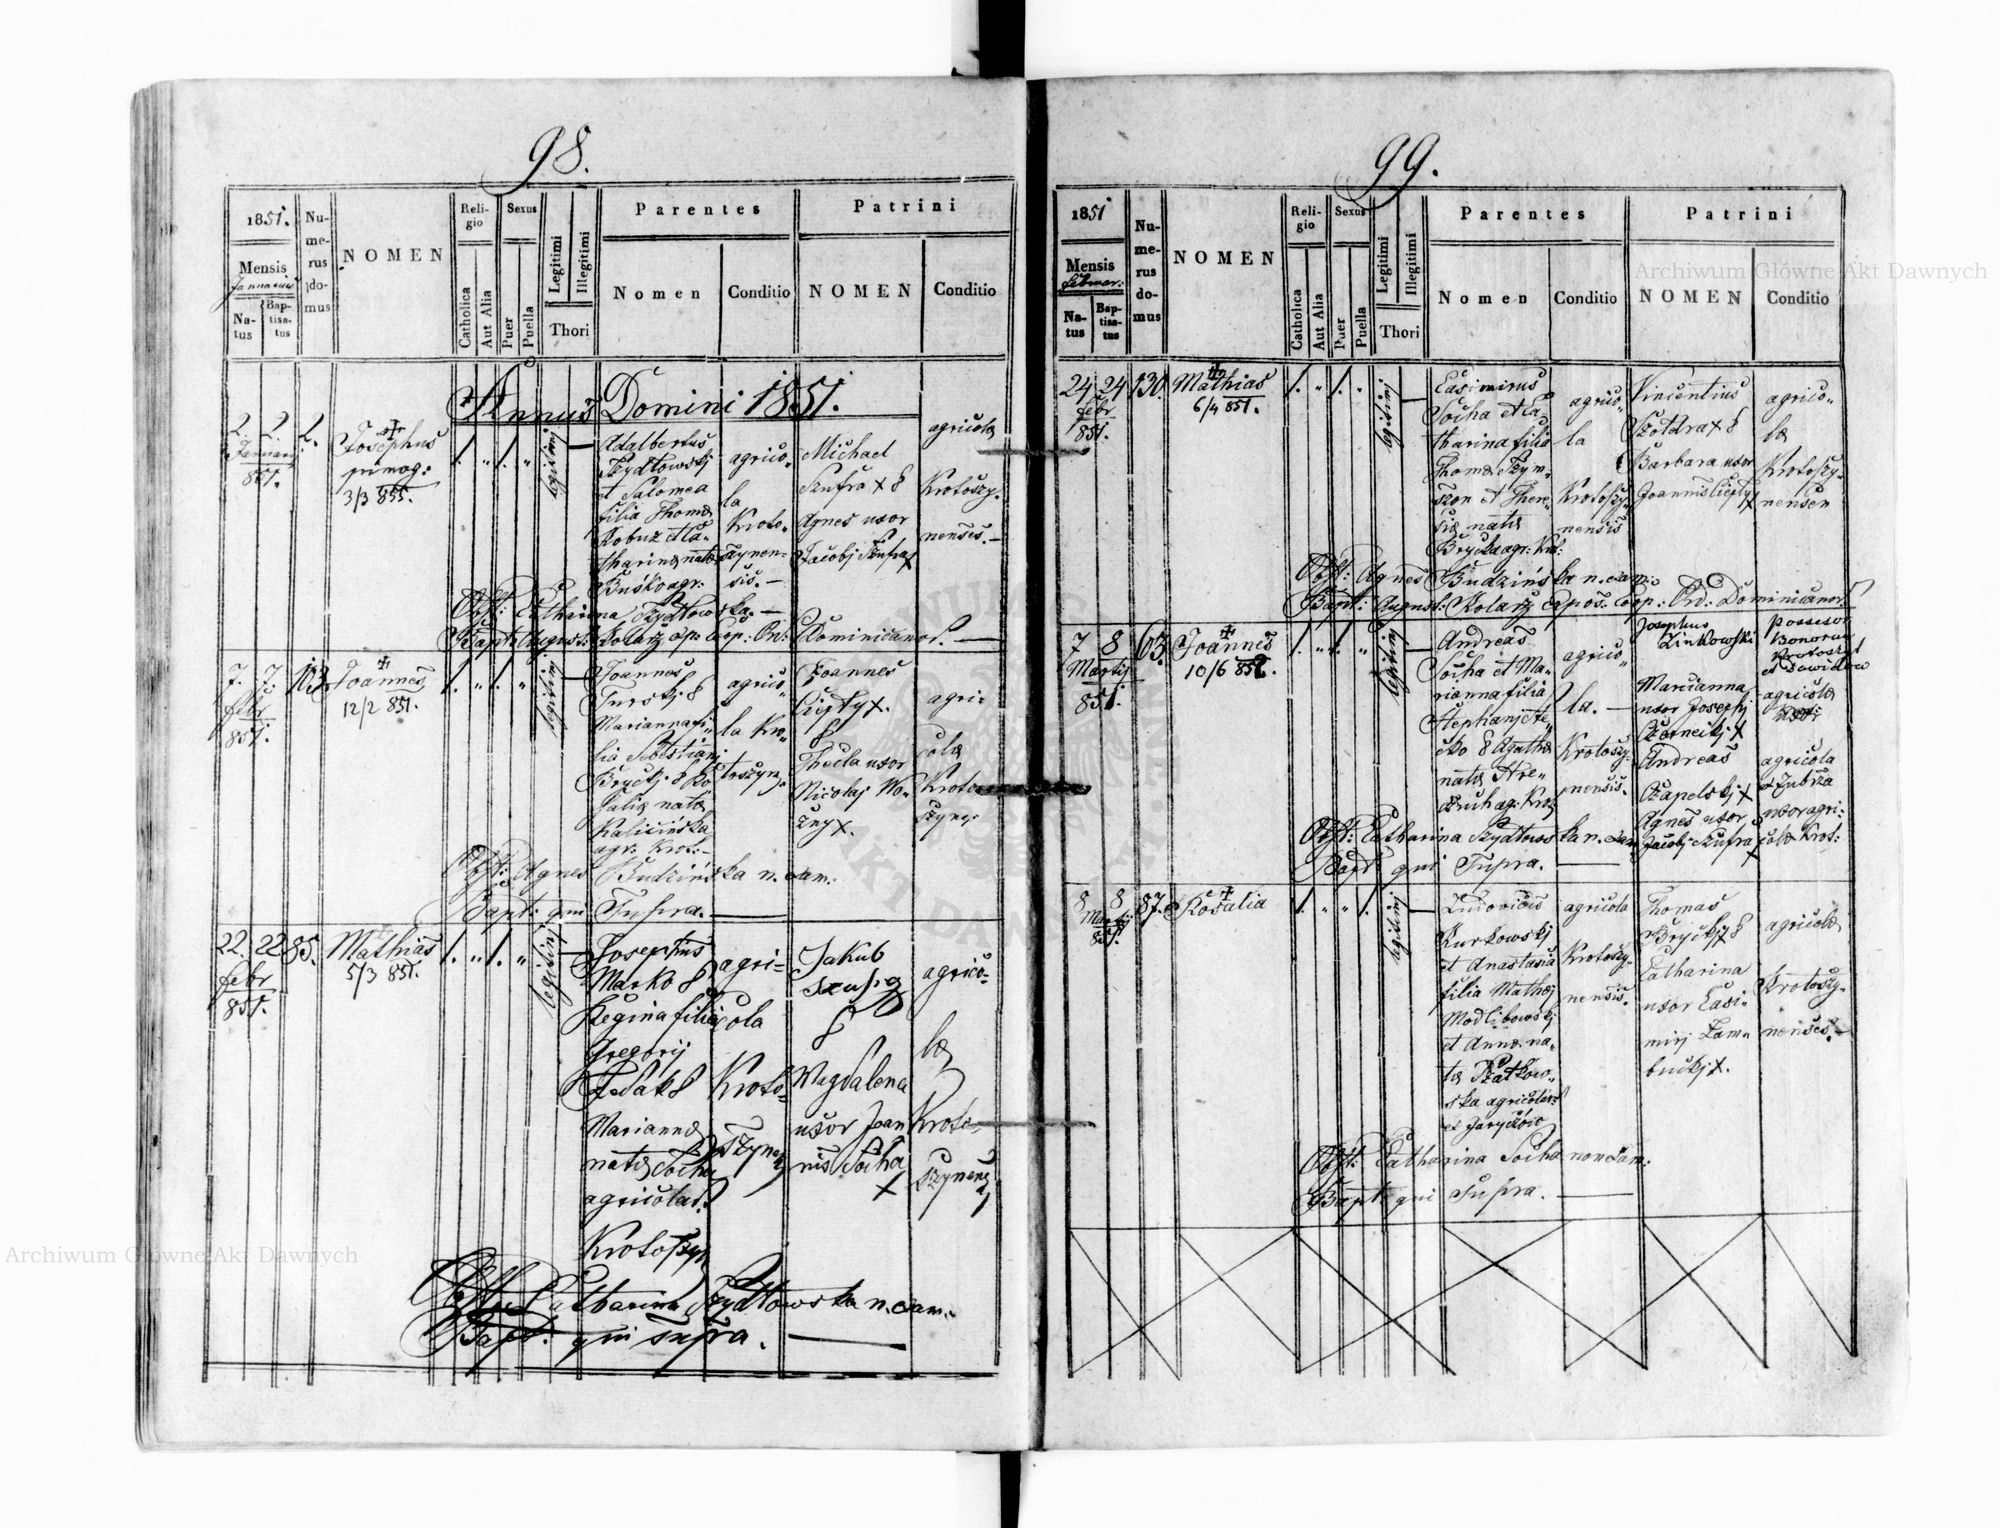 98.
1851.
Mensis
Januarius
Na-
tus
Bap-
tisa-
tus
Nu-
me-
rus
do-
mus
NOMEN
Reli-
gio
Catholica
Aut Alia
Sexus
Puer
Puella
Legitimi
Illegitimi
Thori
Parentes
Nomen
Conditio
Patrini
NOMEN
Conditio
Annus Domini 1851.
2. 2.
Januarij
851.
2.
Josephus
primog:
3/3 855.
1. " 1. "
legitimj
Adalbertus
Szydłowskj
et Salomea
filia Thomæ
Kobuz et Ca-
tharinæ natæ
Buśko agr:
agrico-
la
Kroto-
szynen-
sis.-
Michael
Szufra x &
Agnes uxor
Jacobj Szufra x
agricolæ
Krotoszy-
nenses.-
Obst: Catharina Szydłowska.-
Bapt: August: Kolarz exp: Coop: Ord: Dominicanor.
7. 7.
febr
851.
103
Joannes
12/2 851.
1. " 1. "
legitimj
Joannes
Turskj &
Marianna fi-
lia Sebastianj
Bryckj & Ro-
saliæ natæ
Kalicińska
agr. Krot.-
agrico-
la Kro-
toszyn.
Joannes
Ciepły x.
&
Thecla uxor
Nicolaj Wo-
zny x.
agri-
colæ
Kroto-
szyn:
Obst: Agnes Budzińska n. exam.
Bapt: qui Supra.
22. 22
febr
851.
85.
Mathias
5/3 851.
1. " 1. "
legitimj
Josephus
Marko &
Regina filia
Gregorij
Fedak &
Mariannæ
natæ Socha
agricolar.
Krotoszyn
agri-
cola
Kroto-
szynens
Jakub
Szufra
&
Magdalena
uxor Joan
nis Socha
x
agrico-
læ
Kroto-
szynens
Obst: Catharina Szydłowska n. exam.
Bapt: qui supra.
99.
1851
Mensis
februar:
Na-
tus
Bap-
tisa-
tus
Nu-
me-
rus
do-
mus
NOMEN
Reli-
gio
Catholica
Aut Alia
Sexus
Puer
Puella
Legitimi
Illegitimi
Thori
Parentes
Nomen
Conditio
Patrini
NOMEN
Conditio
24 24
febr
851.
130.
Mathias
6/4 851.
1. " 1. "
legitimj
Casimirus
Socha et Ca-
tharina filia
Thomæ Szym-
szon et There-
siæ natæ
Brycka agr: Krot:
agrico-
la
Krotoszy-
nensis
Vincentius
Szołdra x &
Barbara uxor
Joannis Ciepły x
agrico-
læ
Krotoszy-
nensen
Obst: Agnes Budzińska n. exam:
Bapt: August: Kolarz Expos. Coop: Ord: Dominicanor.
7 8
Martij
851.
63.
Joannes
10/6 852.
1. " 1. "
legitimj
Andreas
Socha et Ma-
rianna filia
Stephanj
& Agathæ
natæ Hre-
czuch agr: Krot
agrico-
la.-
Krotoszy-
nensis.
Josephus
Zinkowski
Marianna
uxor Josephj
Czerneckj x
Andreas
Czapelskj x
Agnes uxor
Jacobj Szufra x
Possesor
Bonorum
Krotoszyn
et Dawidow
agricolæ
agricola
e Zubrza
uxor agri-
colæ Krot:
Obst: Catharina Szydłowska n. exam
Bapt qui Supra.
8 8
Martij
851.
87.
Rosalia
1. " " 1.
legitimj
Ludovicus
Kurkowskj
et Anastasia
filia Mathæj
Modlibowskj
et Annæ na-
tæ Szatkow-
ska agricolar:
ex Jaryczów
agricola
Krotoszy-
nensis.
Thomas
Bryckj x &
Catharina
uxor Casi-
mirj Zam-
buckj x.
agricolæ
Krotoszy-
nenses.-
Obst: Catharina Socha non exam:
Bapt qui Supra.
Archiwum Główne Akt Dawnych
Archiwum Główne Akt Dawnych